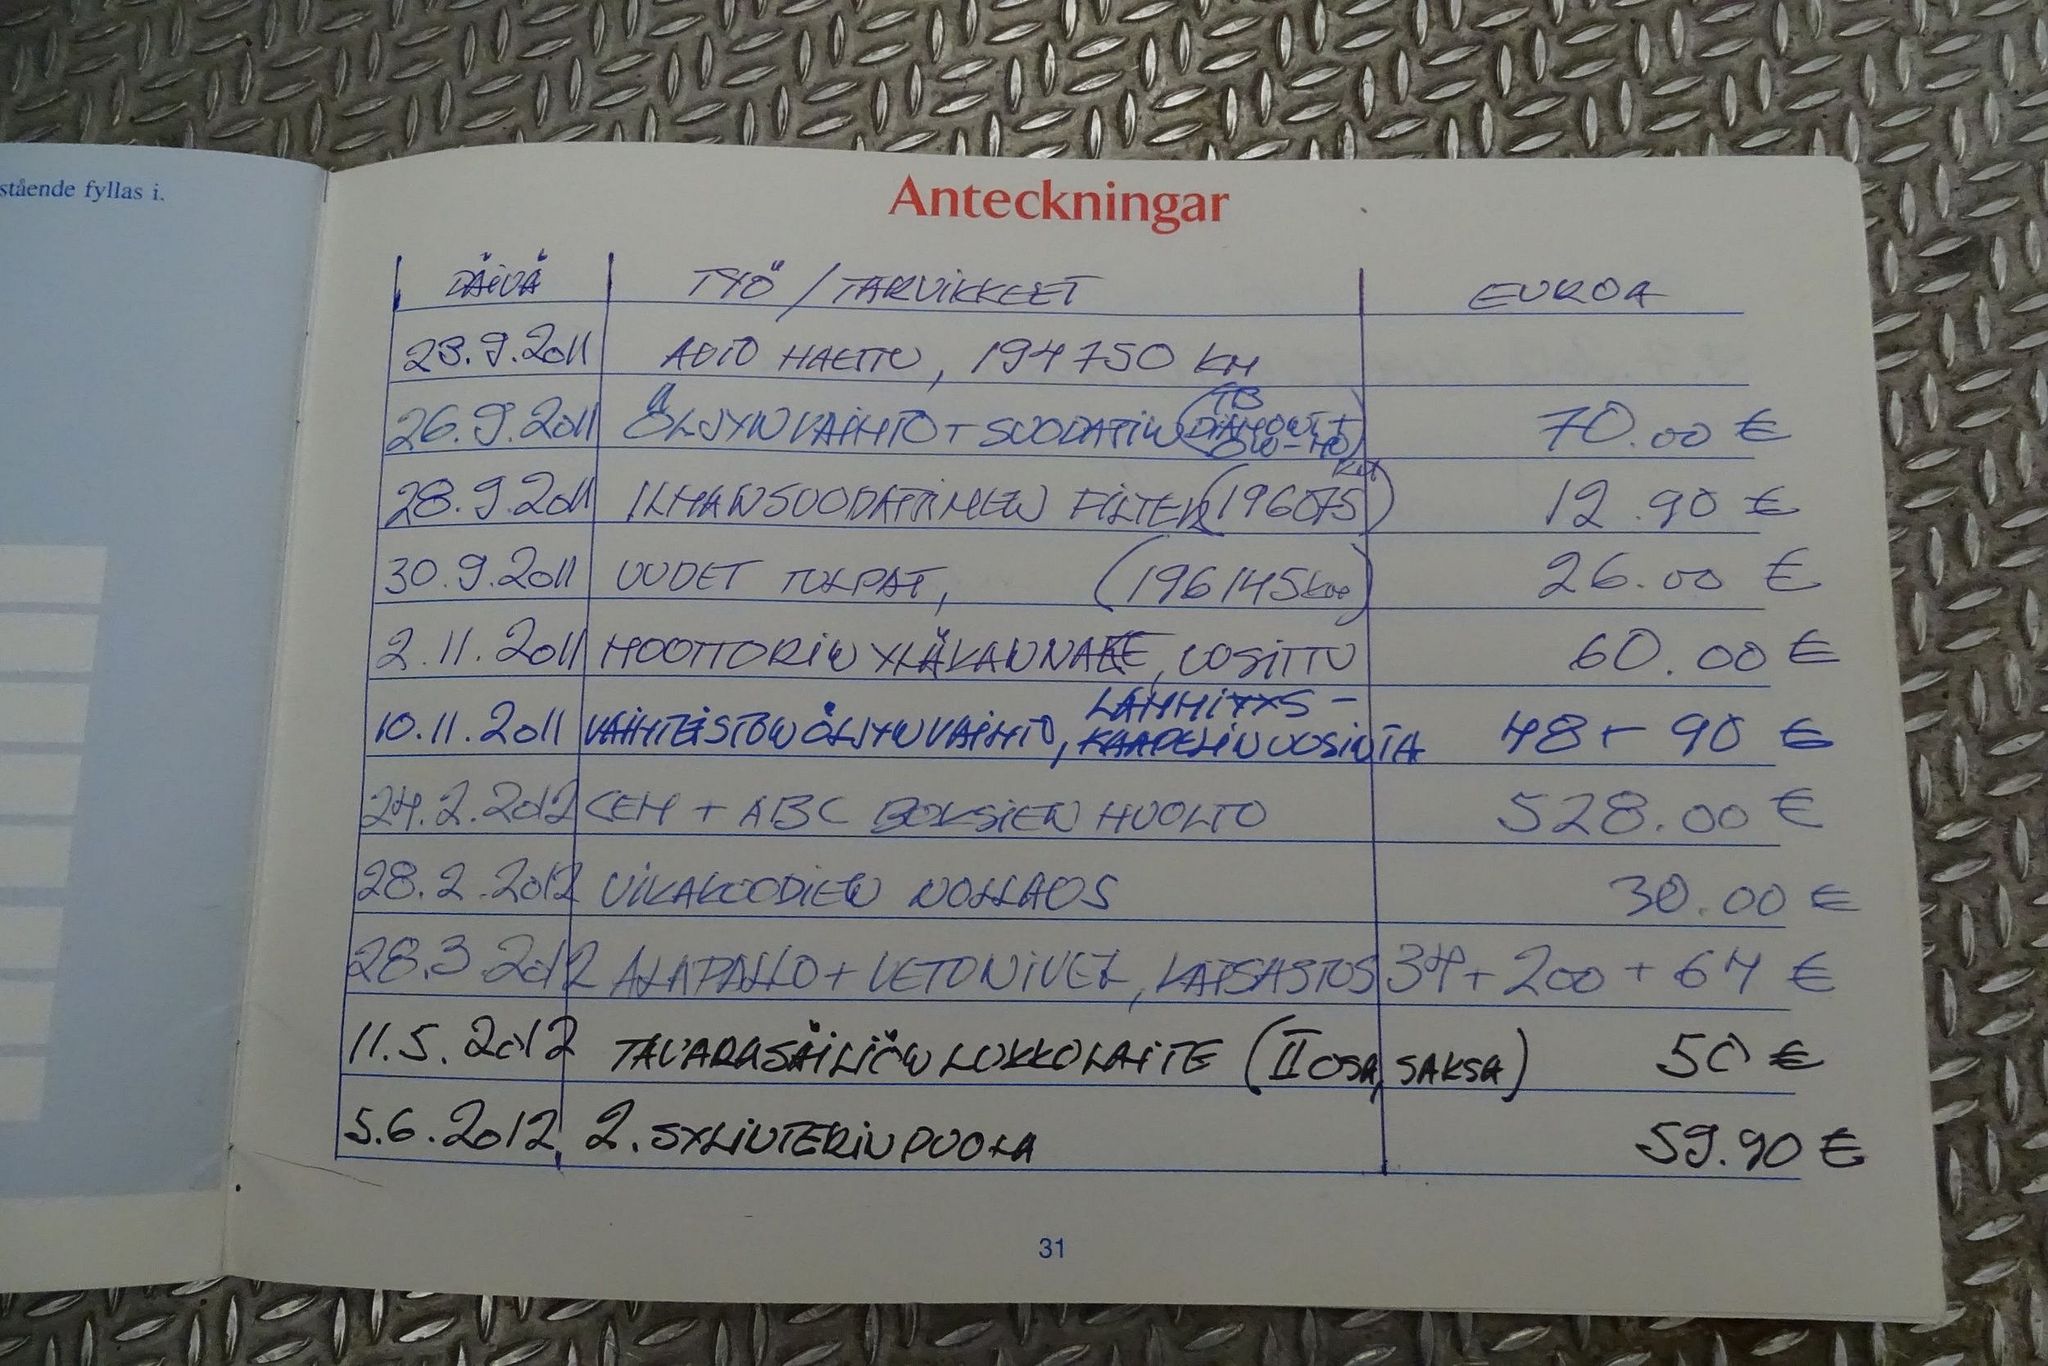 stående fyllas i.
Anteckningar
PÄIVÄ TYÖ / TARVIKKEET EUROA
23.9.2011 AUTO HAETTU, 194750 KM
26.9.2011 ÖLJYNVAIHTO + SUODATIN (TB DIAMOND + 0W-40) 70.00 €
28.9.2011 ILMANSUODATTIMEN FILTERI (196075 KM) 12.90 €
30.9.2011 UUDET TULPAT, (196145 km) 26.00 €
2.11.2011 MOOTTORIN YLÄKANNAKE, UUSITTU 60.00 €
10.11.2011 VAIHTEISTON ÖLJYNVAIHTO, LÄMMITYS-
KAAPELIN UUSINTA 48 + 90 €
24.2.2012 CEM + ABC BOKSIEN HUOLTO 528.00 €
28.2.2012 VIKAKOODIEN NOLLAUS 30.00 €
28.3.2012 ALAPALLO + VETONIVEL, KATSASTUS 34 + 200 + 64 €
11.5.2012 TAVARASÄILIÖN LUKKOLAITE (II OSA, SAKSA) 50 €
5.6.2012 2. SYLINTERIN PUOLA 59.90 €
31